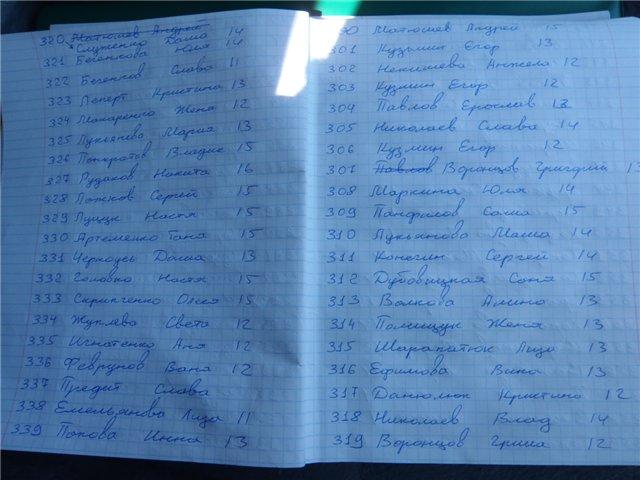 320 Матюшев Андрей 14
Служенко Даша
321 Бегенкова Юля 14
322 Бегенков Слава 11
323 Леперт Кристина 13
324 Макаренко Жена 12
325 Лукьянова Мария 13
326 Панкратов Владик 15
327 Рудаков Никита 16
328 Ложков Сергей 15
329 Луцук Настя 15
330 Артеменко Таня 15
331 Черноусь Даша 13
332 Головко Настя 15
333 Скрипченко Олеся 15
334 Жуплева Света 12
335 Игнатенко Аня 12
336 Феврунов Ваня 12
337 Предит Слава
338 Емельянова Лиза 11
339 Попова Инна 13
Матюшев Андрей 15
301 Кузьмин Егор 13
302 Анжела 12
303 Кузмин Егор 12
304 Павлов Ерослав 13
305 Николаев Слава 14
306 Кузмин Егор 12
307 Павлов Воронцов Григорий
308 Маркина Юля 14
309 Панфилов Саша 15
310 Лукьянова Маша 14
311 Конегин Сергей 14
312 Дубовицкая Соня 15
313 Волкова Амина 13
314 Полищук Женя 13
315 Шарапатюк Лиза 13
316 Ефимова Вика 13
317 Данюлюк Кристина 12
318 Николаев Влад 14
319 Воронцов Гриша 12